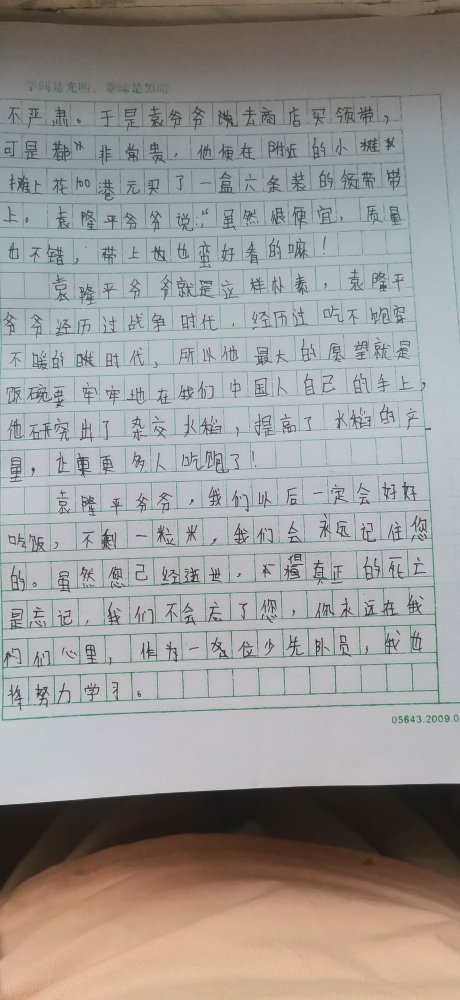 学问是光明，蒙昧是黑暗
不严肃。于是袁爷爷 去商店买领带，
可是都 非常贵，他便在附近的小摊
摊上花100港元买了一盒六条装的领带带
上。袁隆平爷爷说："虽然很便宜，质量
也不错，带上也也蛮好看的嘛！
袁隆平爷爷就是这样朴素，袁隆平
爷爷经历过战争时代，经历过吃不饱穿
不暖的 时代，所以他最大的愿望就是
饭碗要牢牢地在我们中国人自己的手上，
他研究出了杂交水稻，提高了水稻的产
量，让 更多人吃饱了！
袁隆平爷爷，我们以后一定会好好
吃饭，不剩一粒米，我们会永远记住您
的。虽然您已经逝世， 真正的死亡
是忘记，我们不会忘了您，你永远在我
们心里，作为一名位少先队员，我也
努力学习。
05643.2009.0